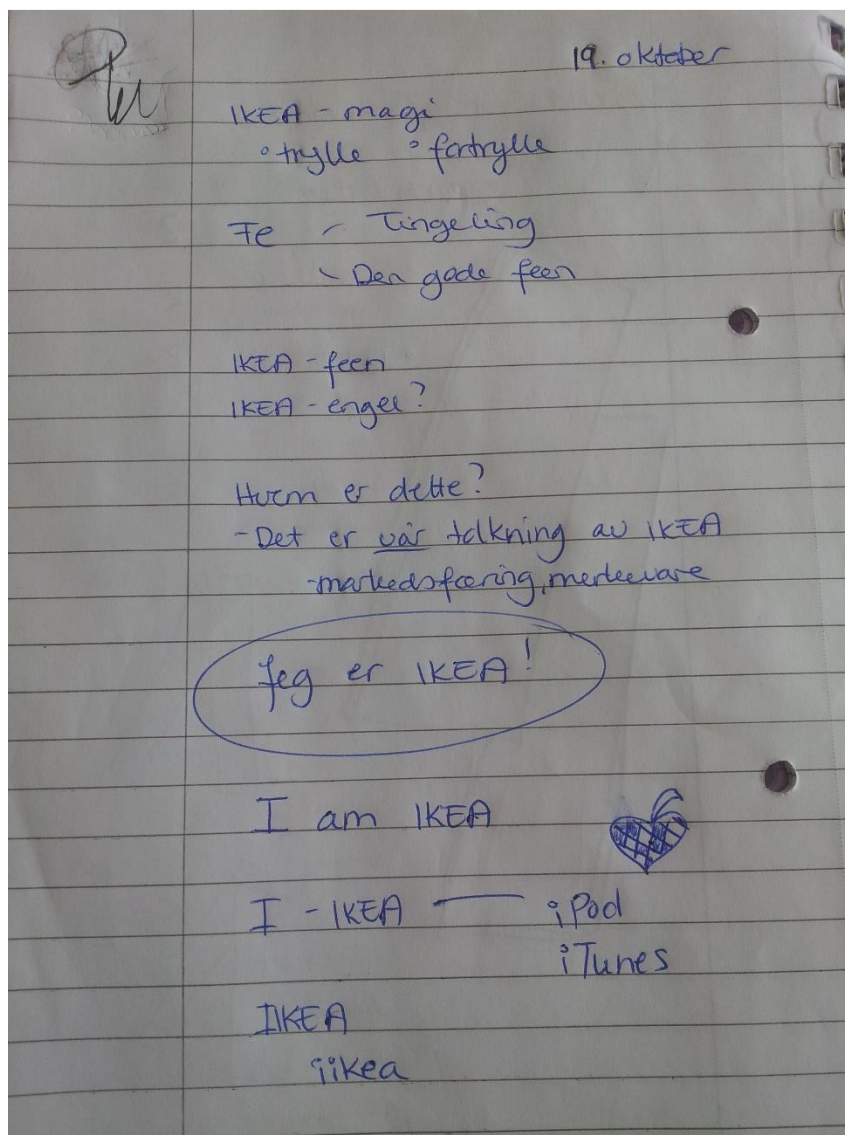 19. oktober
IKEA - magi
° trylle ° fortrylle
Fe - Tingeling
- Den gode feen
IKEA - feen
IKEA - engel?
Hvem er dette?
- Det er vår tolkning av IKEA
- markedsføring, merkevare
Jeg er IKEA!
I am IKEA
I - IKEA — iPod
iTunes
IIKEA
iikea